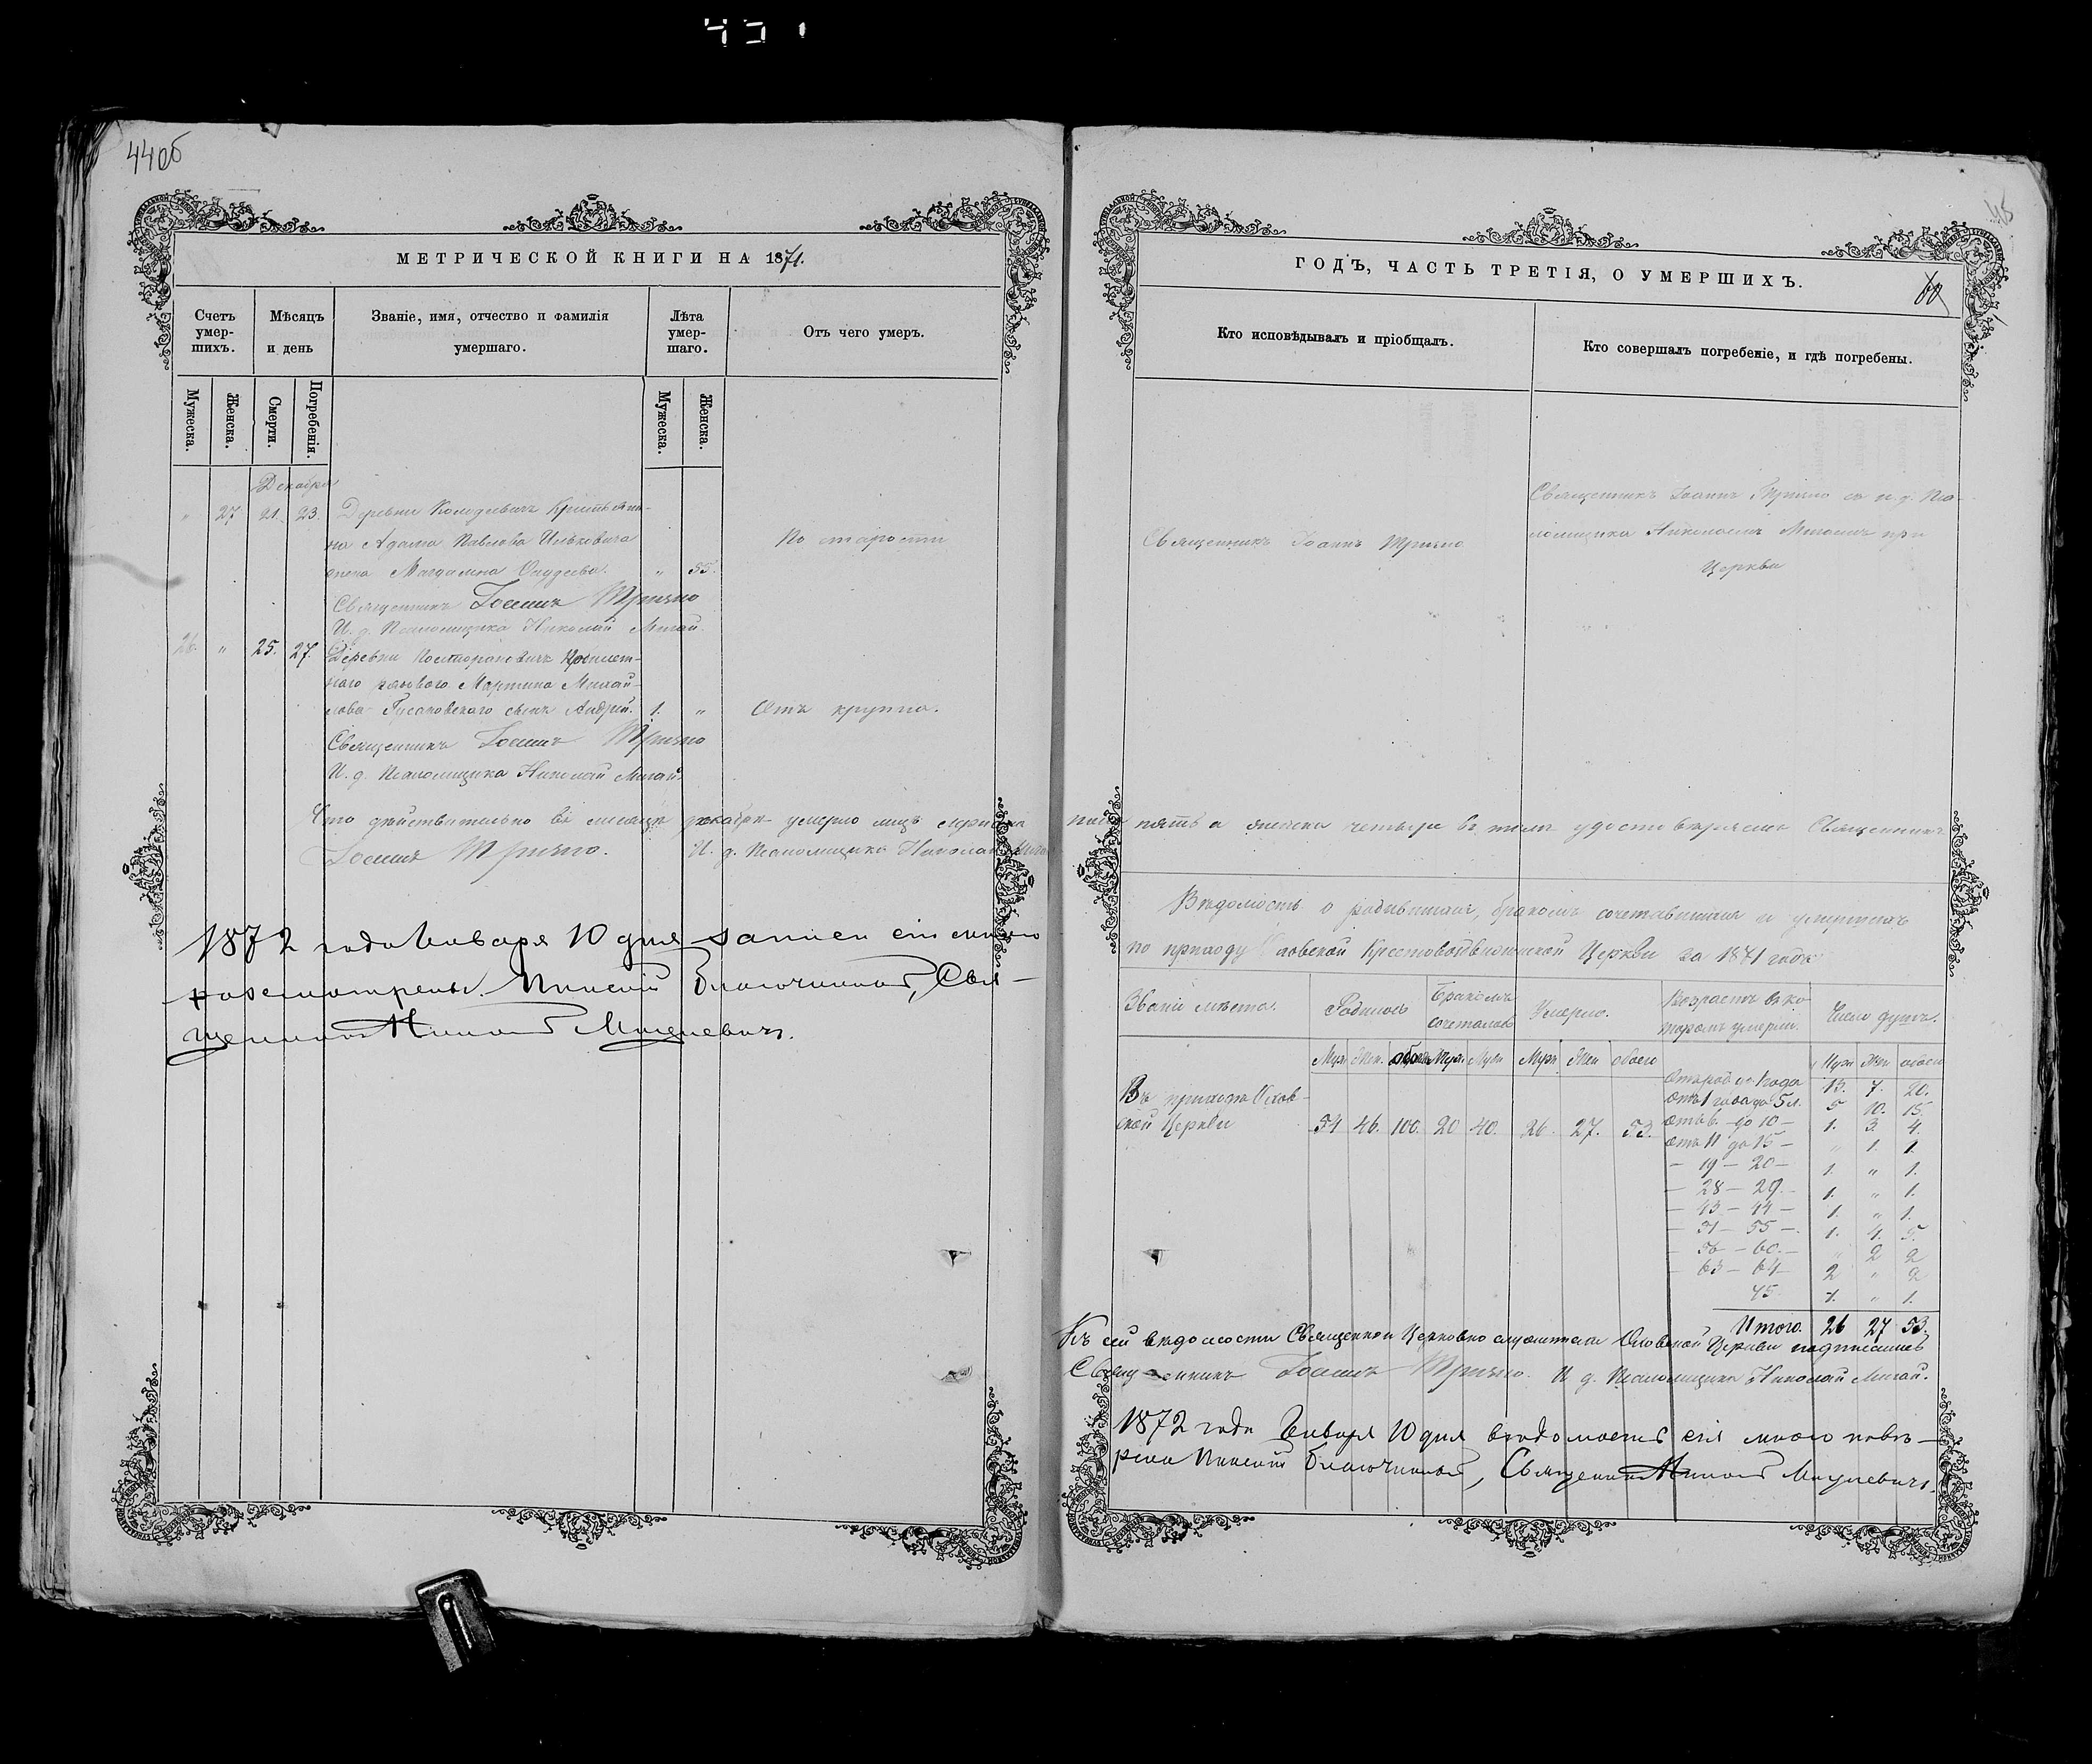 44об
МЕТРИЧЕСКОЙ КНИГИ НА 1871.
Счетъ умер-шихъ.
Мѣсяцъ и день
Званіе, имя, отчество и фамилія умершаго.
Лѣта умер-шаго.
Отъ чего умеръ.
Мужеска.
Женска.
Смерти.
Погребенія.
Мужеска.
Женска.
Декабря
" 27 21. 23. Деревни Колодѣевичъ Крестьяни-
на Адама Павлова Ильковича
жена Магдалина " 55.
По старости
Священникъ Іоаннъ
И. д. Псаломщика Николай Мигай.
26. " 25. 27. Деревни
Мартина Михай-
лова сынъ Андрей. 1. " Отъ крупа.
Священникъ Іоаннъ
И. д. Псаломщика Николай Мигай.
Что дѣйствительно въ мѣсяцѣ декабрѣ умерло лицъ мужеска
Іоаннъ И. д. Псаломщика Николай Мигай
1872 года Января 10 дня записи сіи мною
разсмотрены. Пинскій Благочинный, Свя-
щенникъ
45
ГОДЪ, ЧАСТЬ ТРЕТІЯ, О УМЕРШИХЪ.
60
Кто исповѣдывалъ и пріобщалъ.
Кто совершалъ погребеніе, и гдѣ погребены.
Священникъ Іоаннъ
Священникъ Іоаннъ съ и. д. Пса-
ломщика Николаемъ Мигаемъ при
Церкви
пола пять а женска четыре въ томъ удостовѣряемъ Священникъ
Вѣдомость о родившихся, бракомъ сочетавшихся и умершихъ
по приходу Церкви за 1871 годъ
Званіе мѣста.
Родилось
Бракомъ сочеталось
Умерло.
Возрастъ въ ко-торомъ умерли.
Число душъ.
Муж Жен. обоего Муж Муж Жен обоего Муж Жен обоего
Въ приходѣ
ской Церкви 54 46. 100. 20 40. 26. 27. 53.
Отъ рожд. до 1 года 13. 7. 20.
Отъ 1 года до 5 л. 5 10. 15.
Отъ 6. – до 10 – 1. 3. 4.
Отъ 11 до 15 – " 1. 1.
– 19 – 20 – 1. " 1.
– 28 – 29. – 1. " 1.
– 43 – 44 – 1. " 1.
– 51 – 55 – 1. 4. 5.
– 56 – 60. – " 2 2
– 63 – 64 – 2 " 2
75. 1. " 1.
Итого. 26 27 53.
Къ сей вѣдомости Священно и Церковно служители Церкви подписались
Священникъ Іоаннъ И д. Псаломщика Николай Мигай.
1872 года Января 10 дня вѣдомость сія мною повѣ-
рена Пинскій Благочинный, Священникъ